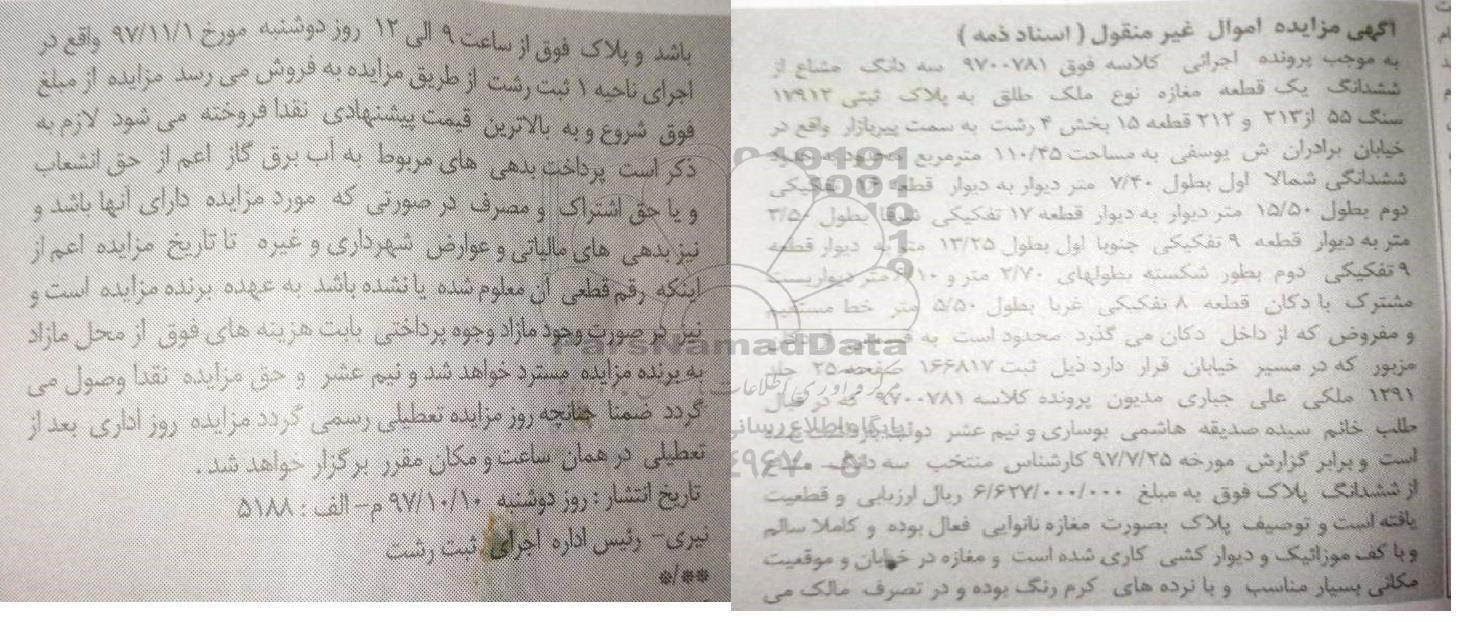 آگهی مزایده اموال غیر منقول ( اسناد ذمه )
به موجب پرونده اجرائی کلاسه فوق ۹۷۰۰۷۸۱ سه دانگ مشاع از
ششدانگ یک قطعه مغازه نوع ملک طلق به پلاک ثبتی ۱۷۹۱۲
سنگ ۵۵ از ۲۱۳ و ۲۱۲ قطعه ۱۵ بخش ۴ رشت به سمت پیربازار واقع در
خیابان برادران ش یوسفی به مساحت ۱۱۰/۴۵ مترمربع محدود به حدود
ششدانگی شمالا اول بطول ۷/۴۰ متر دیوار به دیوار قطعه تفکیکی
دوم بطول ۱۵/۵۰ متر دیوار به دیوار قطعه ۱۷ تفکیکی شرقا بطول ۳/۵۰
متر به دیوار قطعه ۹ تفکیکی جنوبا اول بطول ۱۳/۲۵ متر به دیوار قطعه
۹ تفکیکی دوم بطور شکسته بطولهای ۲/۷۰ متر و متر دیواریست
مشترک با دکان قطعه ۸ تفکیکی غربا بطول ۵/۵۰ متر خط مستقیم
و مفروض که از داخل دکان می گذرد محدود است به
مزبور که در مسیر خیابان قرار دارد ذیل ثبت ۱۶۶۸۱۷ صفحه ۲۵ جلد
۱۲۹۱ ملکی علی جباری مدیون پرونده کلاسه ۹۷۰۰۷۸۱ که در قبال
طلب خانم سیده صدیقه هاشمی بوساری و نیم عشر دولتی بازداشت شده
است و برابر گزارش مورخه ۹۷/۷/۲۵ کارشناس منتخب سه دانگ مشاع
از ششدانگ پلاک فوق به مبلغ ۶/۶۲۷/۰۰۰/۰۰۰ ریال ارزیابی و قطعیت
یافته است و توصیف پلاک بصورت مغازه نانوایی فعال بوده و کاملا سالم
و با کف موزائیک و دیوار کشی کاری شده است و مغازه در خیابان و موقعیت
مکانی بسیار مناسب و با نرده های کرم رنگ بوده و در تصرف مالک می
باشد و پلاک فوق از ساعت ۹ الی ۱۲ روز دوشنبه مورخ ۹۷/۱۱/۱ واقع در
اجرای ناحیه ۱ ثبت رشت از طریق مزایده به فروش می رسد مزایده از مبلغ
فوق شروع و به بالاترین قیمت پیشنهادی نقدا فروخته می شود لازم به
ذکر است پرداخت بدهی های مربوط به آب برق گاز اعم از حق انشعاب
و یا حق اشتراک و مصرف در صورتی که مورد مزایده دارای آنها باشد و
نیز بدهی های مالیاتی و عوارض شهرداری و غیره تا تاریخ مزایده اعم از
اینکه رقم قطعی آن معلوم شده یا نشده باشد به عهده برنده مزایده است و
نیز در صورت وجود مازاد وجوه پرداختی بابت هزینه های فوق از محل مازاد
به برنده مزایده مسترد خواهد شد و نیم عشر و حق مزایده نقدا وصول می
گردد ضمنا چنانچه روز مزایده تعطیلی رسمی گردد مزایده روز اداری بعد از
تعطیلی در همان ساعت و مکان مقرر برگزار خواهد شد .
تاریخ انتشار : روز دوشنبه ۹۷/۱۰/۱۰ م - الف : ۵۱۸۸
نیری - رئیس اداره اجرای ثبت رشت
**/*
ParsNamadData
پایگاه اطلاع رسانی